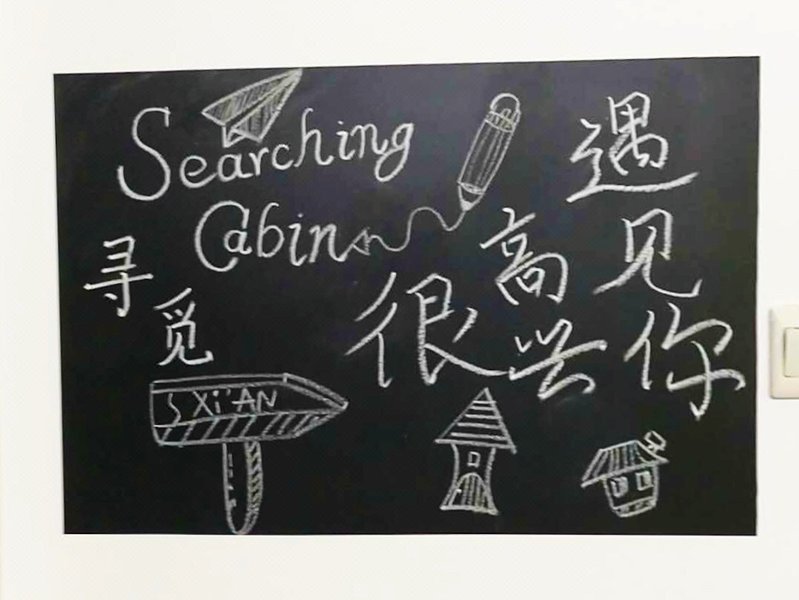 Searching
Cabin
寻觅
很
高兴
遇见你
S Xi'AN